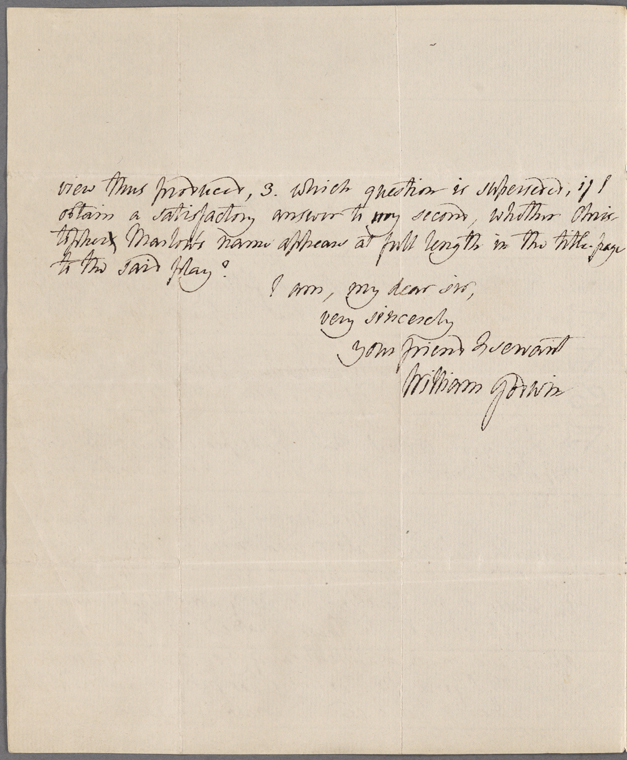 view thus produced, 3. which question is superseded, if I
obtain a satisfactory answer to my second, whether Chris
topher Marlow's name appears at full length in the title-page
to the said play?
I am, my dear sir,
very sincerely
Your friend & servant
William Godwin